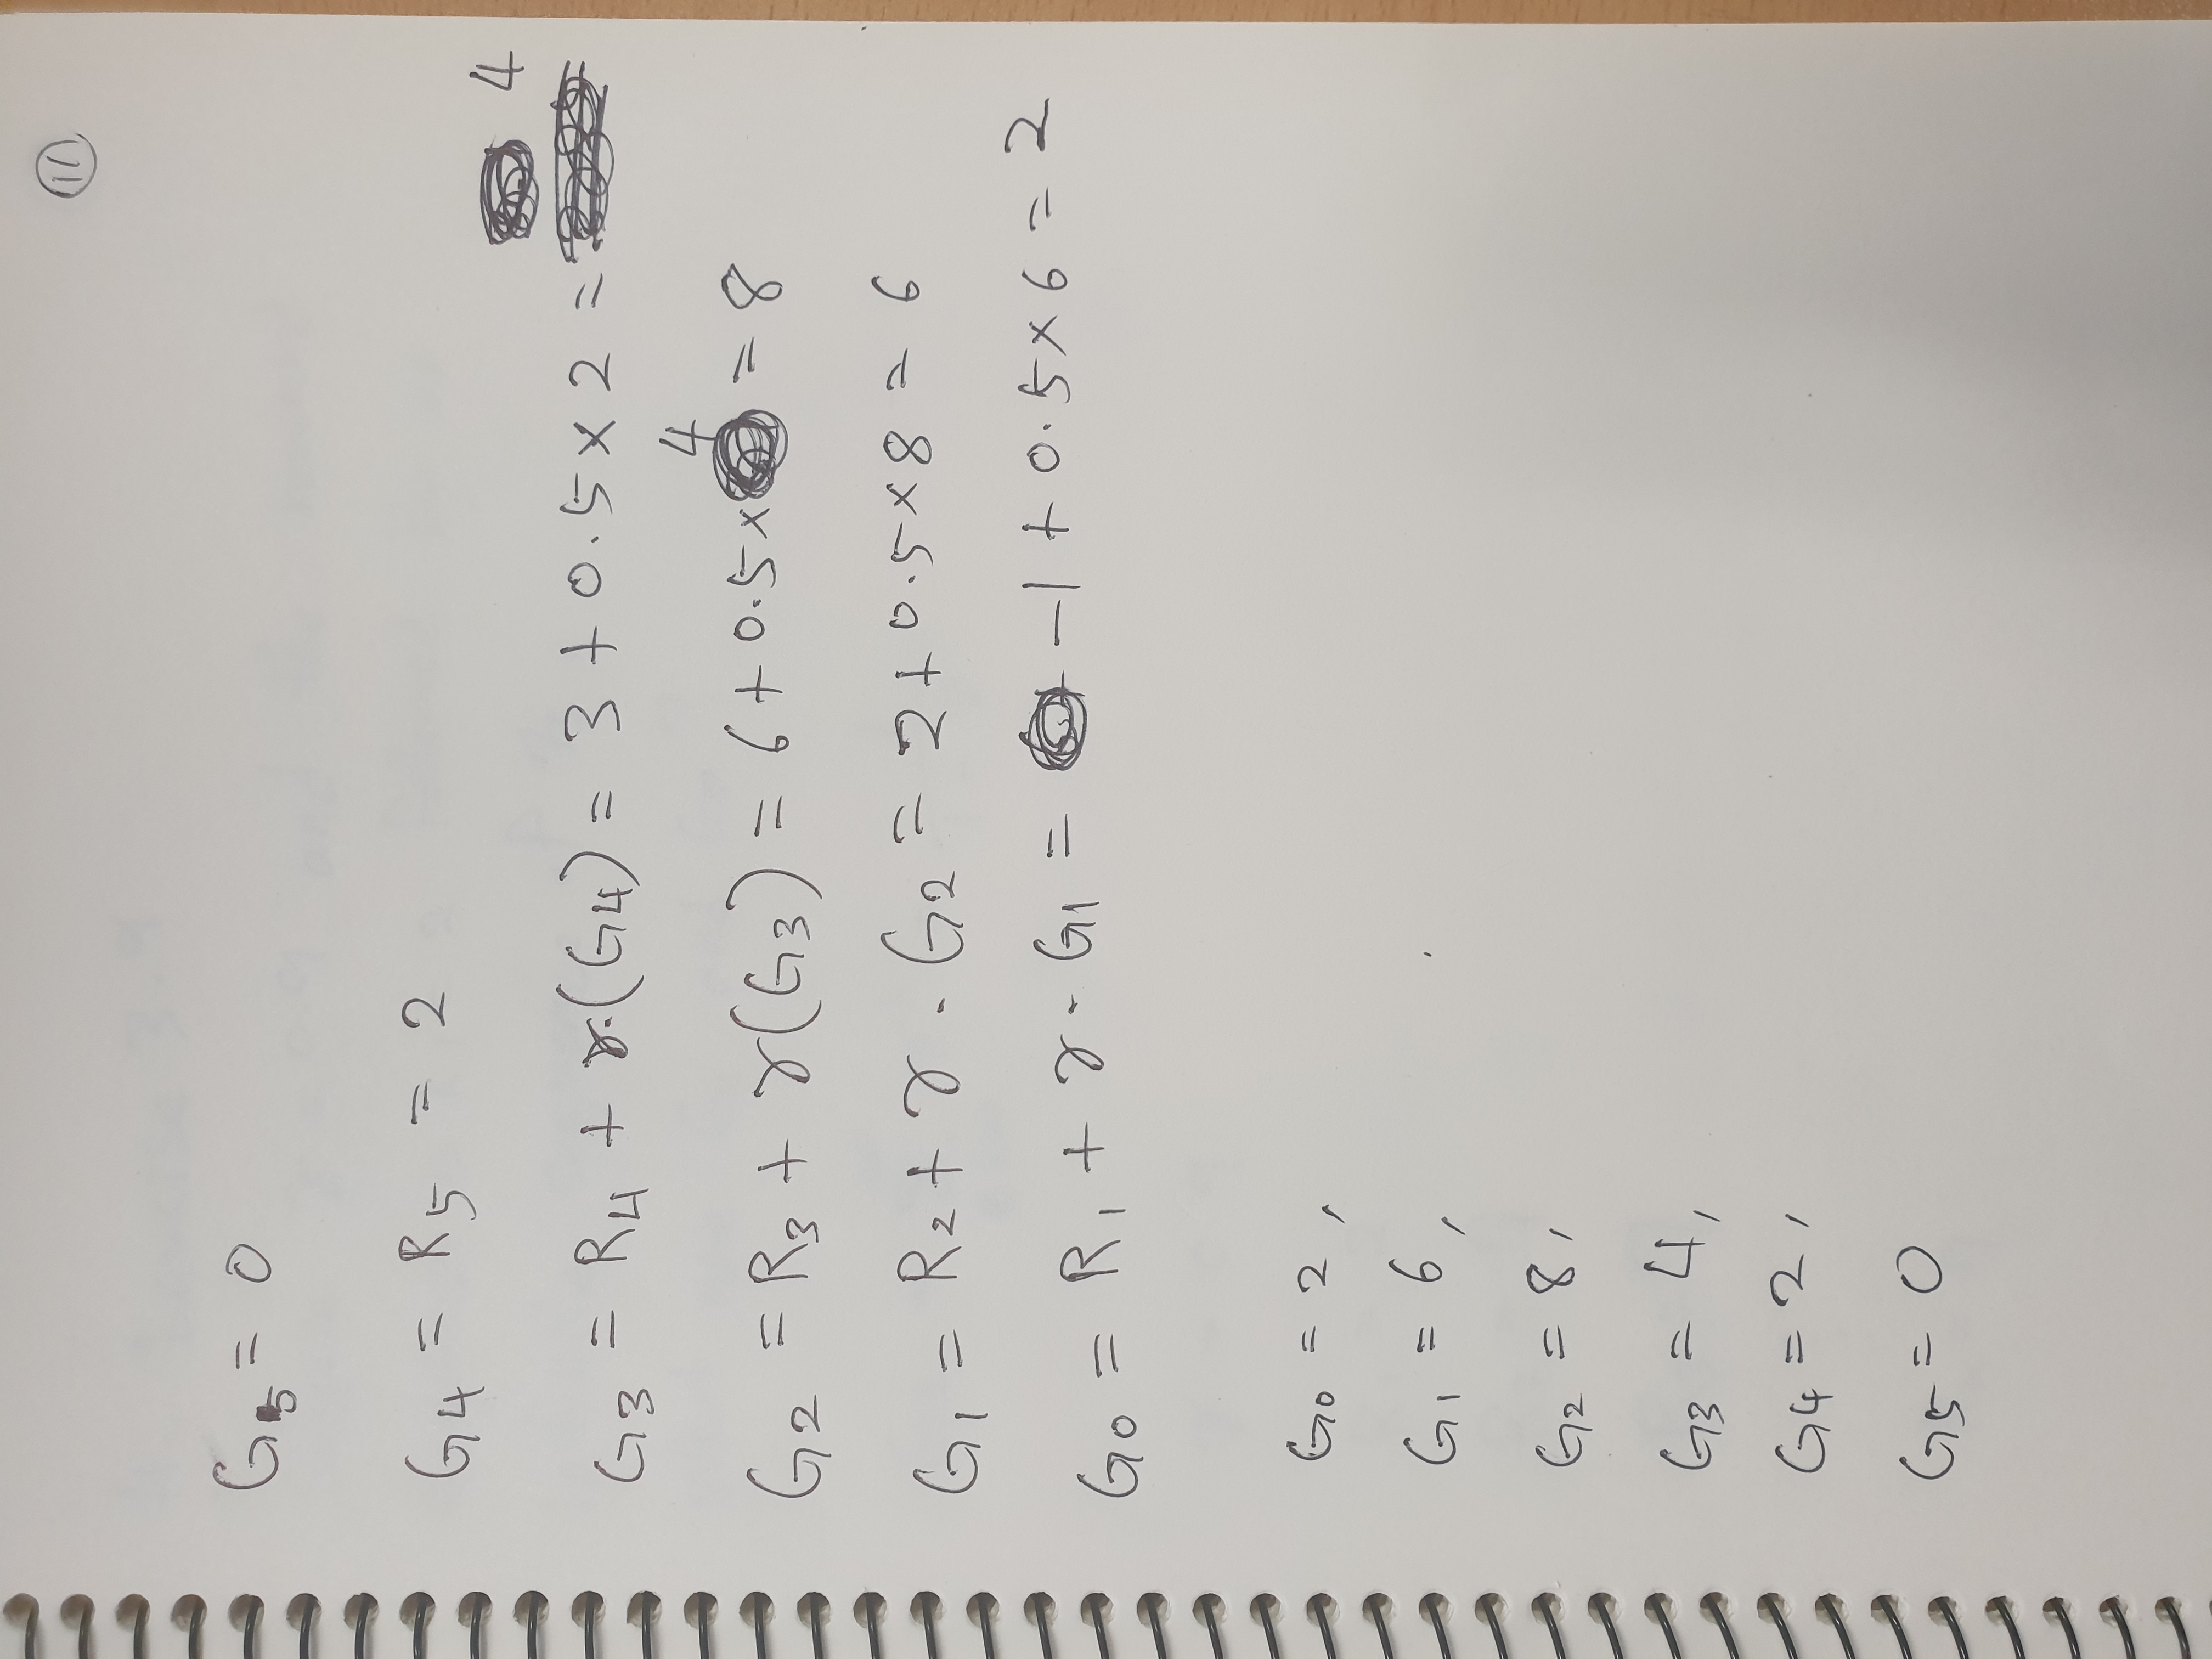 11
G5 = 0
G4 = R5 = 2
G3 = R4 + γ.(G4) = 3 + 0.5 × 2 = 4
G2 = R3 + γ(G3) = 6 + 0.5 × 4 = 8
G1 = R2 + γ . G2 = 2 + 0.5 × 8 = 6
G0 = R1 + γ . G1 = -1 + 0.5 × 6 = 2
G0 = 2,
G1 = 6,
G2 = 8,
G3 = 4,
G4 = 2,
G5 = 0